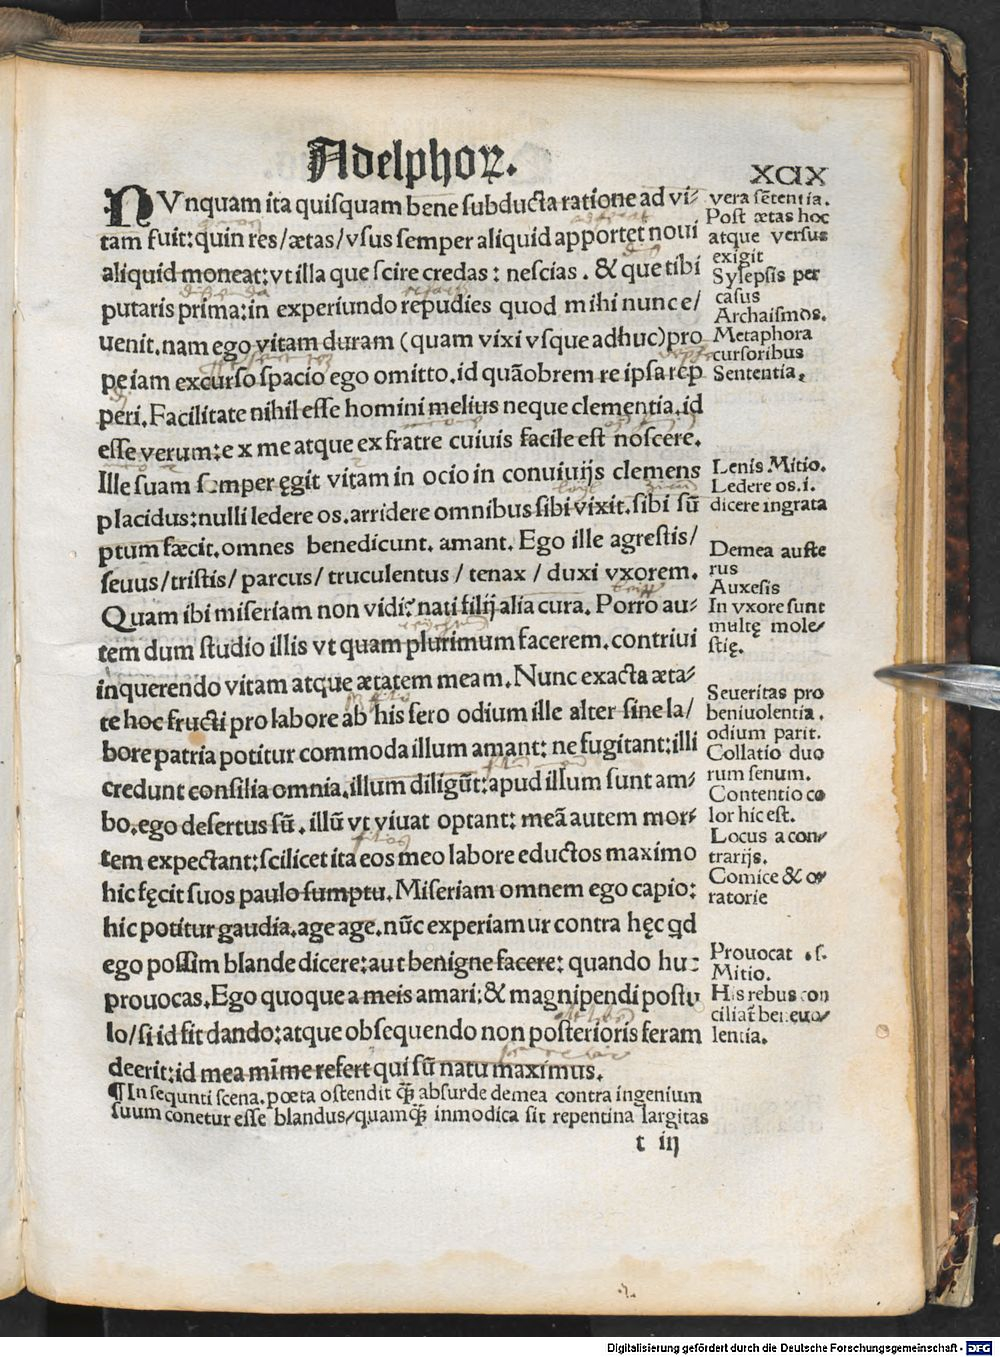 Adelphoꝝ.
XCIX
NVnquam ita quiſquam bene ſubducta ratione ad vi⸗
tam fuit: quin res/ ætas/ vſus ſemper aliquid apportet noui
aliquid moneat: vt illa que ſcire credas: neſcias. & que tibi
putaris prima: in experiundo repudies quod mihi nunc e/
uenit. nam ego vitam duram (quam vixi vſque adhuc) pro
pe iam excurſo ſpacio ego omitto. id quãobrem re ipſa rep
peri. Facilitate nihil eſſe homini melius neque clementia. id
eſſe verum: e x me atque ex fratre cuiuis facile eſt noſcere.
Ille ſuam ſemper ęgit vitam in ocio in conuiuijs clemens
placidus: nulli ledere os. arridere omnibus ſibi vixit. ſibi ſũ
ptum fæcit. omnes benedicunt. amant. Ego ille agreſtis/
ſeuus/ triſtis/ parcus/ truculentus / tenax / duxi vxorem.
Quam ibi miſeriam non vidi? nati filij alia cura. Porro au⸗
tem dum ſtudio illis vt quam plurimum facerem. contriui
in querendo vitam atque ætatem meam. Nunc exacta æta⸗
te hoc fructi pro labore ab his fero odium ille alter ſine la/
bore patria potitur commoda illum amant: ne fugitant: illi
credunt conſilia omnia. illum diligũt: apud illum ſunt am⸗
bo. ego deſertus ſũ. illũ vt viuat optant: meã autem mor⸗
tem expectant: ſcilicet ita eos meo labore eductos maximo
hic fęcit ſuos paulo ſumptu. Miſeriam omnem ego capio:
hic potitur gaudia. age age. nũc experiamur contra hęc qd
ego poſſim blande dicere: aut benigne facere: quando huc
prouocas. Ego quoque a meis amari: & magni pendi poſtu
lo/ ſi id fit dando: atque obſequendo non poſterioris feram
deerit: id mea mĩme refert qui ſũ natu maximus.
¶ In ſequnti ſcena. poeta oſtendit qꝫ abſurde demea contra ingenium
ſuum conetur eſſe blandus/ quamqꝫ inmodica ſit repentina largitas
t iij
vera ſẽtentia.
Poſt ætas hoc
atque verſus
exigit
Sylepſis per
caſus
Archaiſmos.
Metaphora
curſoribus
Sententia.
Lenis Mitio.
Ledere os .i.
dicere ingrata
Demea auſte
rus
Auxeſis
In vxore ſunt
multę mole/
ſtię.
Seueritas pro
beniuolentia.
odium parit.
Collatio duo
rum ſenum.
Contentio co
lor hic eſt.
Locus a con/
trarijs.
Comice & or
ratorie
Prouocat .ſ.
Mitio.
His rebus con
ciliat̃ beneuo/
lentia.
Digitalisierung gefördert durch die Deutsche Forschungsgemeinschaft - DFG